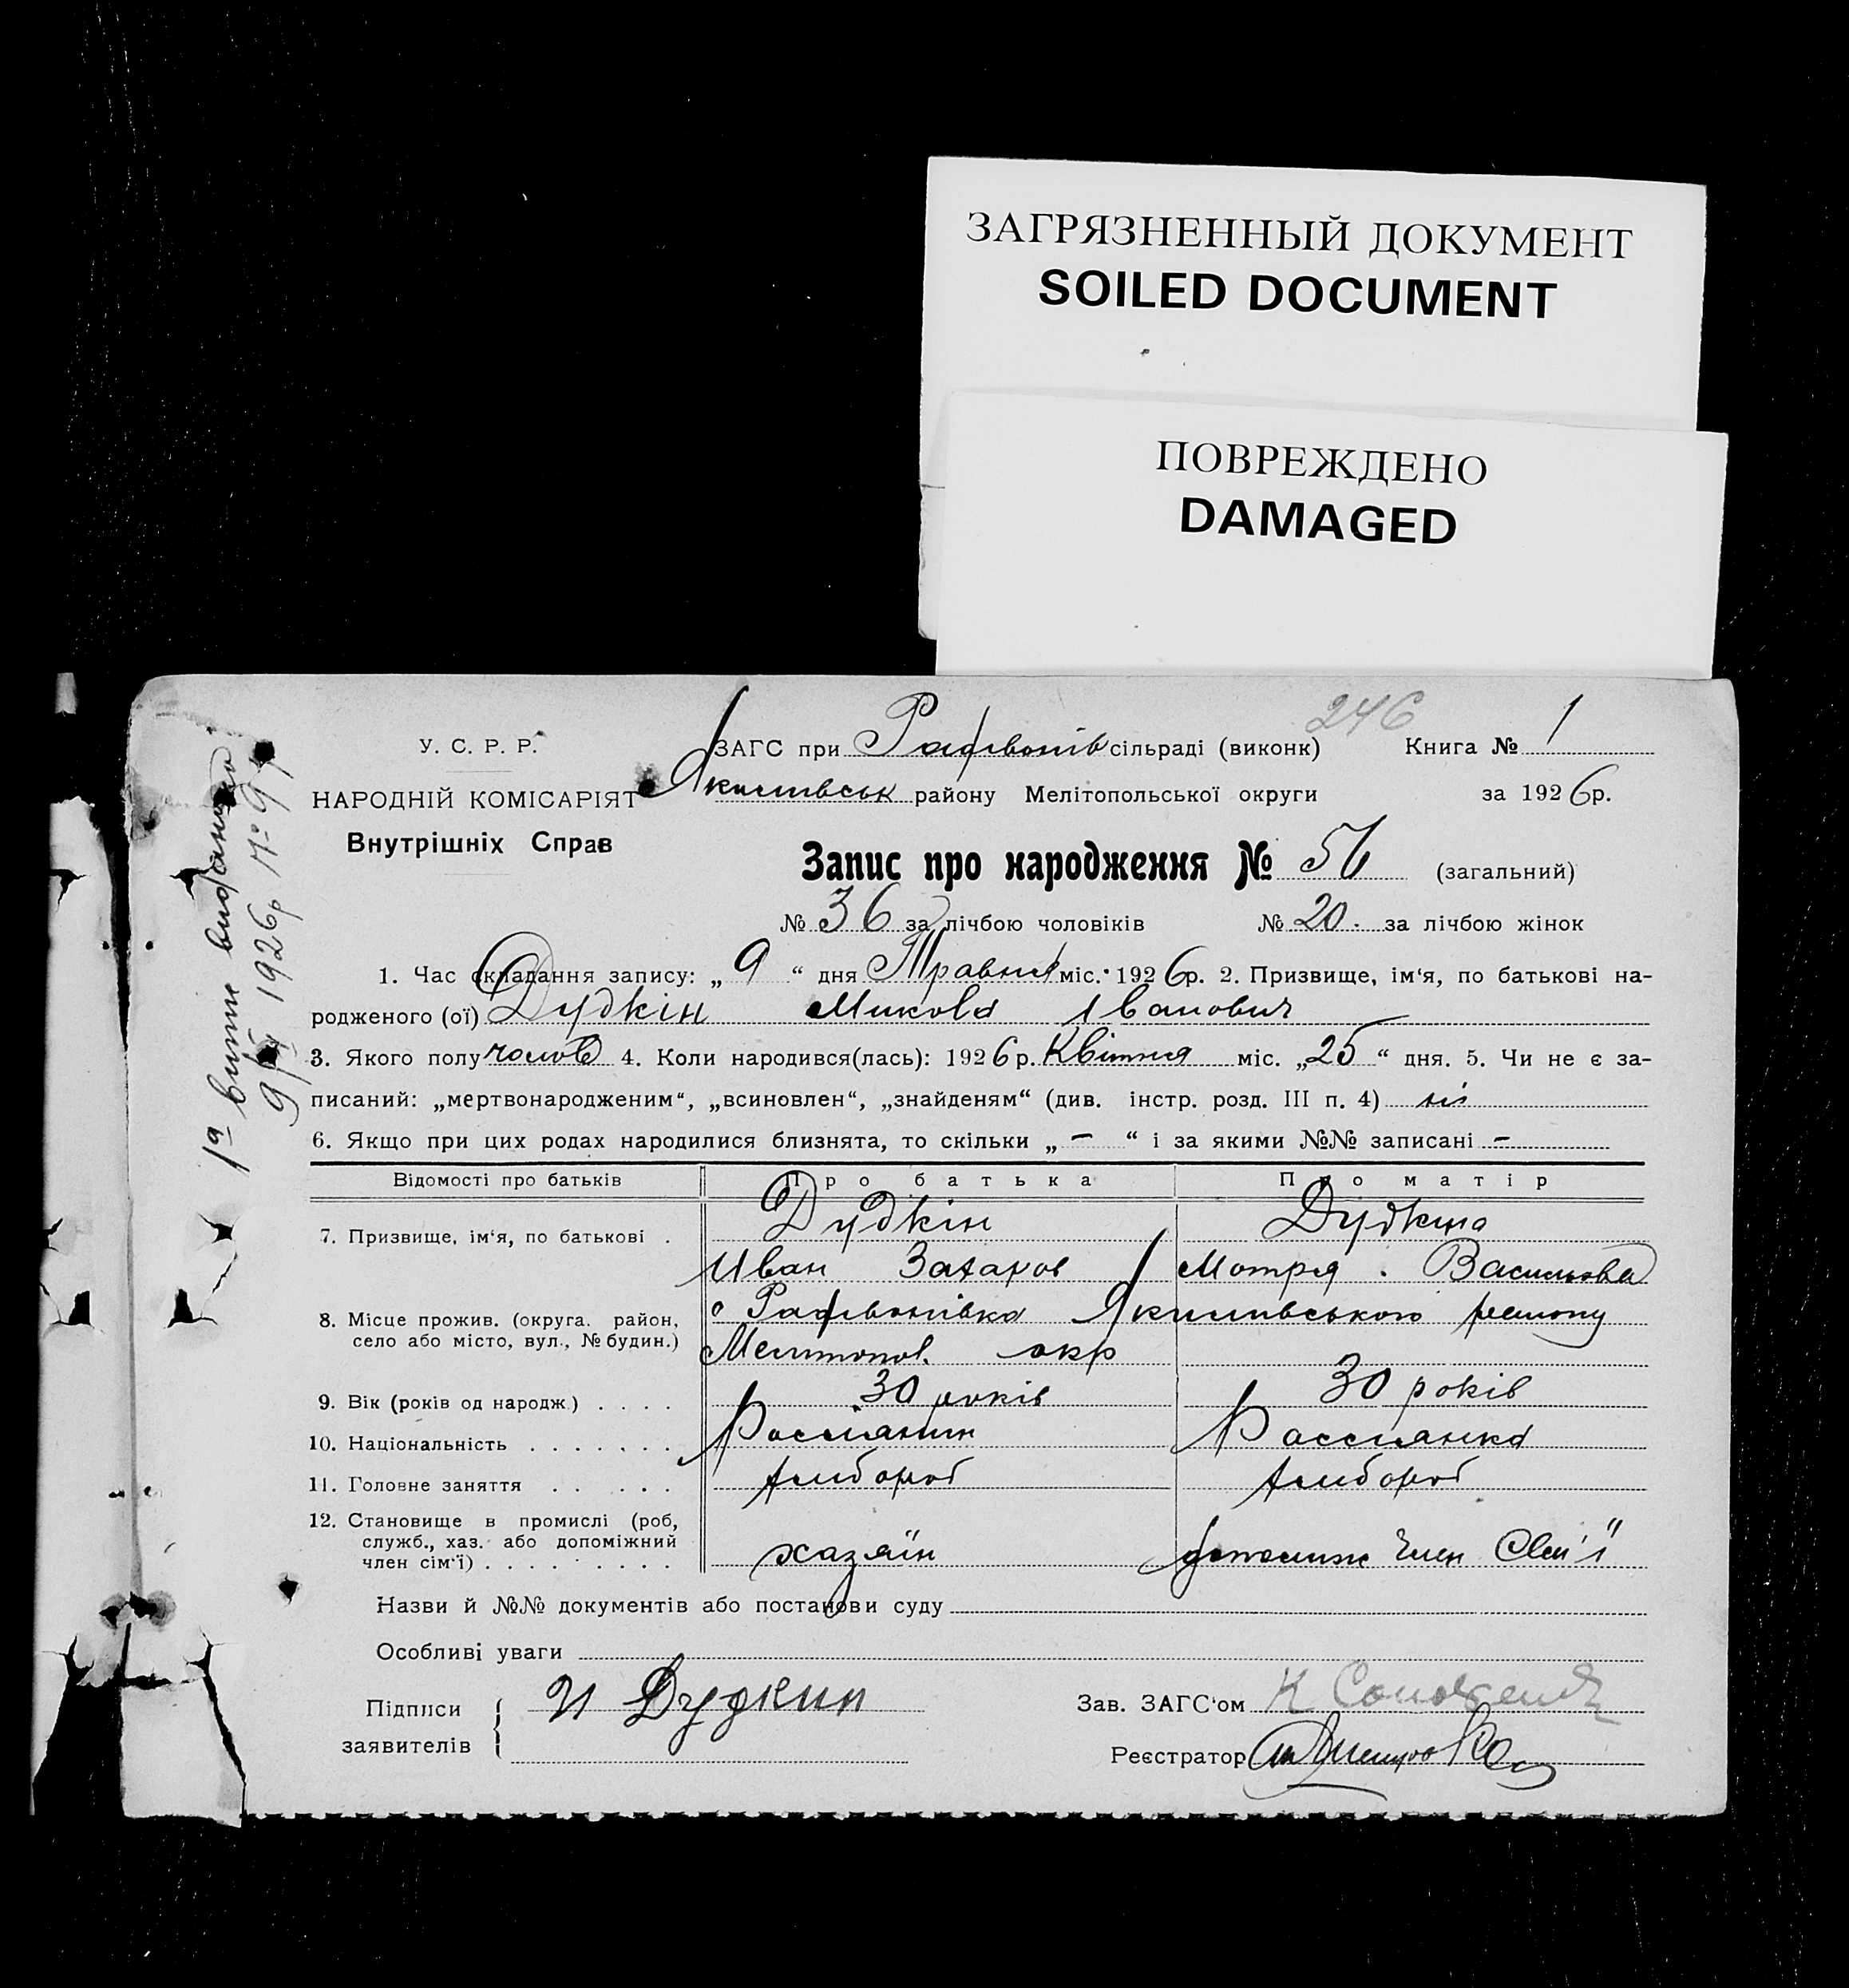 ЗАГРЯЗНЕННЫЙ ДОКУМЕНТ
SOILED DOCUMENT
ПОВРЕЖДЕНО
DAMAGED
246
У. С. Р. Р.
ЗАГС при Радівонів сільраді (виконк) Книга № 1
НАРОДНІЙ КОМІСАРІЯТ
Якимівськ району Мелітопольської округи за 1926р.
Внутрішніх Справ
Запис про народження № 56 (загальний)
№ 36 за лічбою чоловіків № 20. за лічбою жінок
1. Час складання запису: „ 9 “ дня Травня міс. 1926р. 2. Призвище, ім‘я, по батькові на-
родженого (ої) Дудкін Микола Іванович
3. Якого полу чолов 4. Коли народився(лась): 1926р. Квітня міс. „25“ дня. 5. Чи не є за-
писаний: „мертвонародженим“, „всиновлен“, „знайденям“ (див. інстр. розд. III п. 4) ні
6. Якщо при цих родах народилися близнята, то скільки „ – “ і за якими №№ записані –
Відомості про батьків Про батька Про матір
7. Призвище, ім‘я, по батькові . Дудкін Дудкина
Иван Захаров Мотря . Васильова
8. Місце прожив. (округа. район, село або місто, вул., № будин.) с Радівонівка Якимівського району
Мелитопол. окр
9. Вік (років од народж.) . . . . 30 років 30 років
10. Національність . . . . . . . Россіянин Россіянка
11. Головне заняття . . . . . Хлібороб Хлібороб
12. Становище в промислі (роб, служб., хаз. або допоміжний член сім‘ї) . . . . . . . . . хазяїн допоміж член Сем'ї
Назви й №№ документів або постанови суду
Особливі уваги
Підписи заявителів И Дудкин
Зав. ЗАГС‘ом К
Реєстратор
1а видано
9/V 1926р № 91